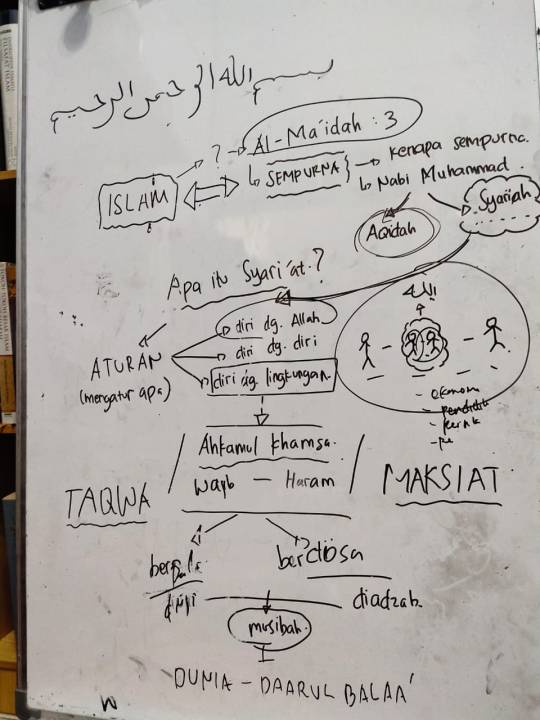 بسم الله الرحمن الرحيم
? → Al-Ma'idah : 3
ISLAM
SEMPURNA → kenapa sempurna.
Nabi Muhammad.
Aqidah
Syariah
Apa itu Syari'at ?
الله
ATURAN
(mengatur apa)
diri dg. Allah
diri dg. diri
diri dg. lingkungan.
- ekonomi
Ahkamul khamsa.
wajib — Haram
TAQWA / / MAKSIAT
berdosa
diuji
diadzab.
musibah.
DUNIA - DAARUL BALAA'